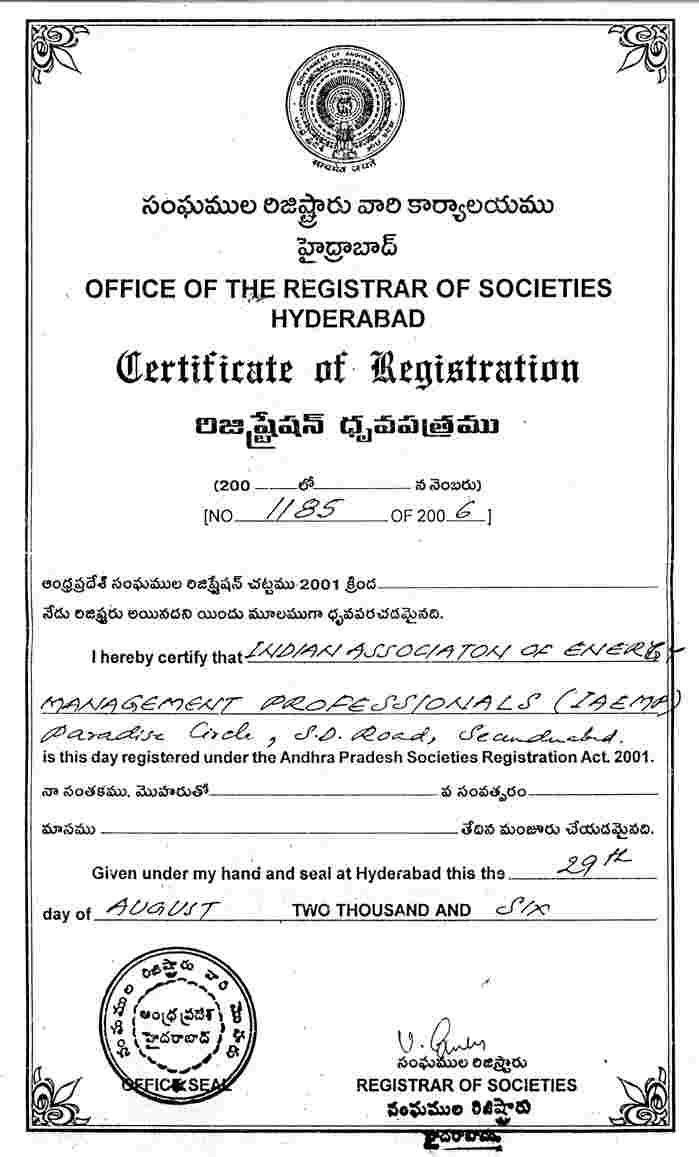 GOVERNMENT OF ANDHRA PRADESH
सत्यमेव जयते
సంఘముల రిజిష్ట్రారు వారి కార్యాలయము
హైద్రాబాద్
OFFICE OF THE REGISTRAR OF SOCIETIES
HYDERABAD
Certificate of Registration
రిజిష్ట్రేషన్ ధృవపత్రము
(200 లో న నెంబరు)
[NO 1185 OF 200 6 ]
ఆంధ్రప్రదేశ్ సంఘముల రిజిష్ట్రేషన్ చట్టము 2001 క్రింద
నేడు రిజిష్టరు అయినదని యిందు మూలముగా ధృవపరచడమైనది.
I hereby certify that INDIAN ASSOCIATON OF ENERGY
MANAGEMENT PROFESSIONALS (IAEMP)
Paradise Circle, S.D. Road,
is this day registered under the Andhra Pradesh Societies Registration Act. 2001.
నా సంతకము, మొహరుతో వ సంవత్సరం
మాసము తేదిన మంజూరు చేయడమైనది.
Given under my hand and seal at Hyderabad this the 29th
day of AUGUST TWO THOUSAND AND SIX
సంఘముల రిజిష్ట్రారు వారి మొహరు
ఆంధ్ర ప్రదేశ్
హైదరాబాద్
OFFICE SEAL
సంఘముల రిజిస్ట్రారు
REGISTRAR OF SOCIETIES
సంఘముల రిజిష్ట్రారు